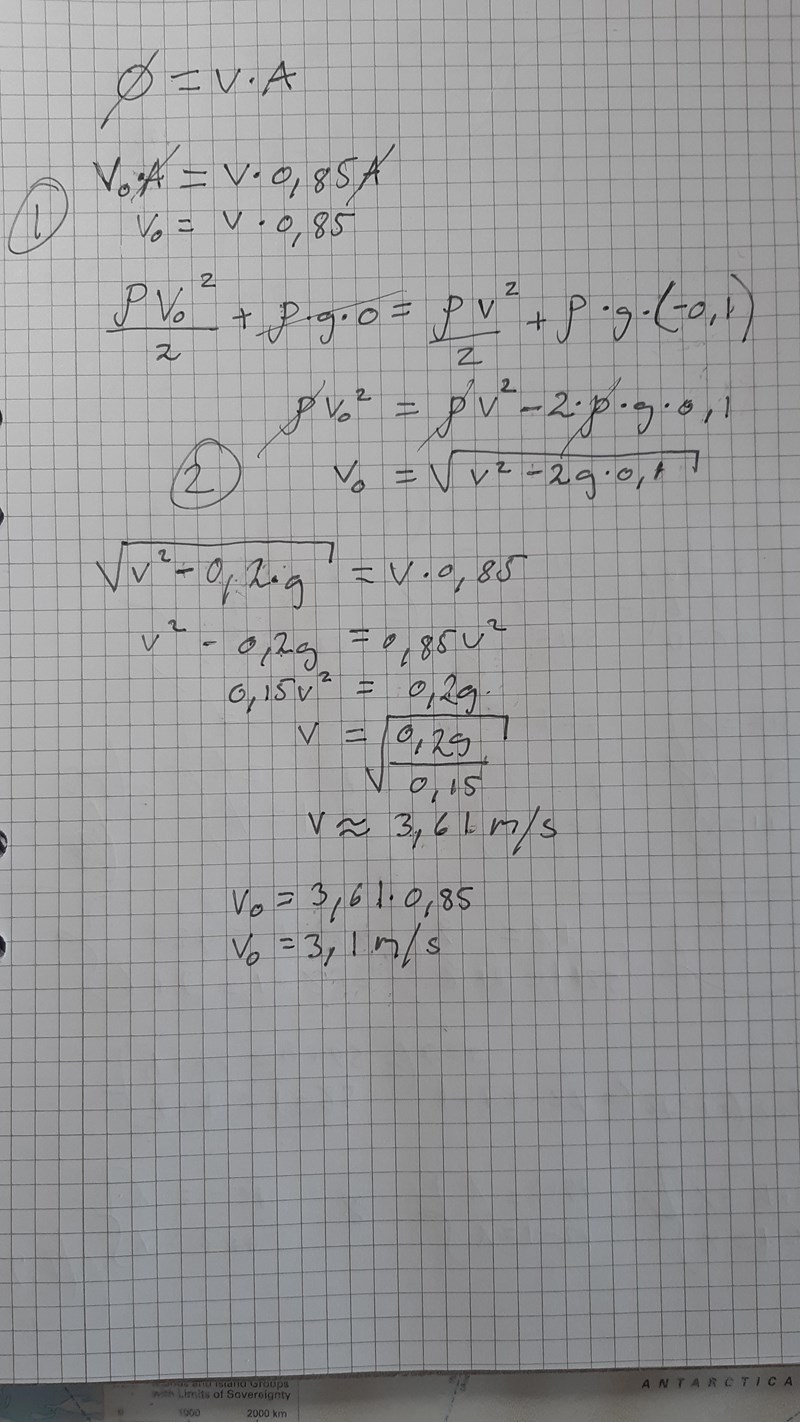 ∅ = V · A
V₀·A = V · 0,85A
①
V₀ = V · 0,85
ρV₀²/2 + ρ·g·0 = ρV²/2 + ρ·g·(-0,1)
ρV₀² = ρV² - 2·ρ·g·0,1
② V₀ = √(V² - 2g·0,1)
√(V² - 0,2·g) = V·0,85
V² - 0,2g = 0,85V²
0,15V² = 0,2g.
V = √(0,2g/0,15)
V ≈ 3,61 m/s
V₀ = 3,61·0,85
V₀ = 3,1 m/s
and Island Groups
with Limits of Sovereignty
0 1000 2000 km
ANTARCTICA